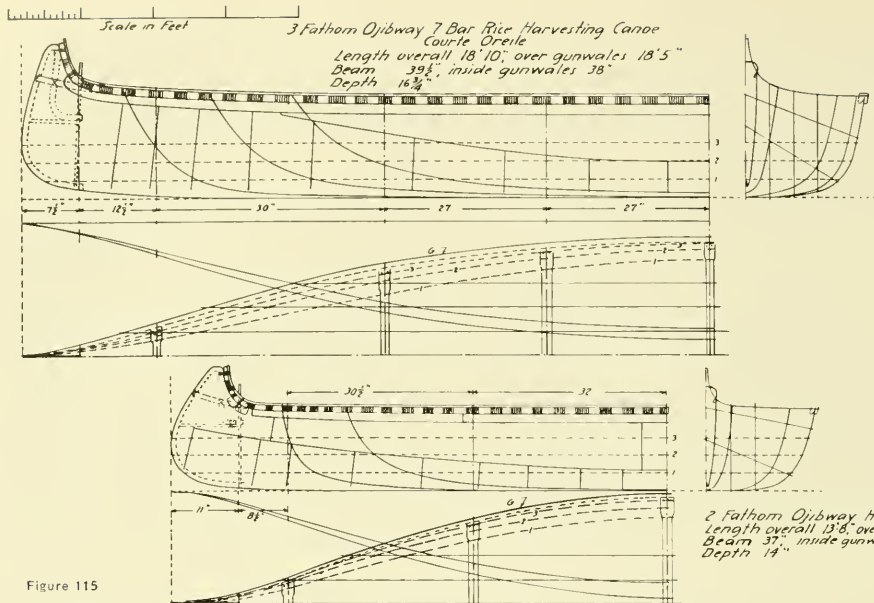 Scale in Feet
3 Fathom Ojibway 7 Bar Rice Harvesting Canoe
Courte Oreile
Length overall 18'10", over gunwales 18'5"
Beam 39½", inside gunwales 38"
Depth 16¾"
3
2
1
7½" 12½" 30" 27 27"
G 7
3 2 1
3
2
1
30½" 32
3
2
1
11" 8½"
G 7
3
2
1
2 Fathom Ojibway H
Length overall 13'8", ove
Beam 37", inside gunw
Depth 14"
Figure 115